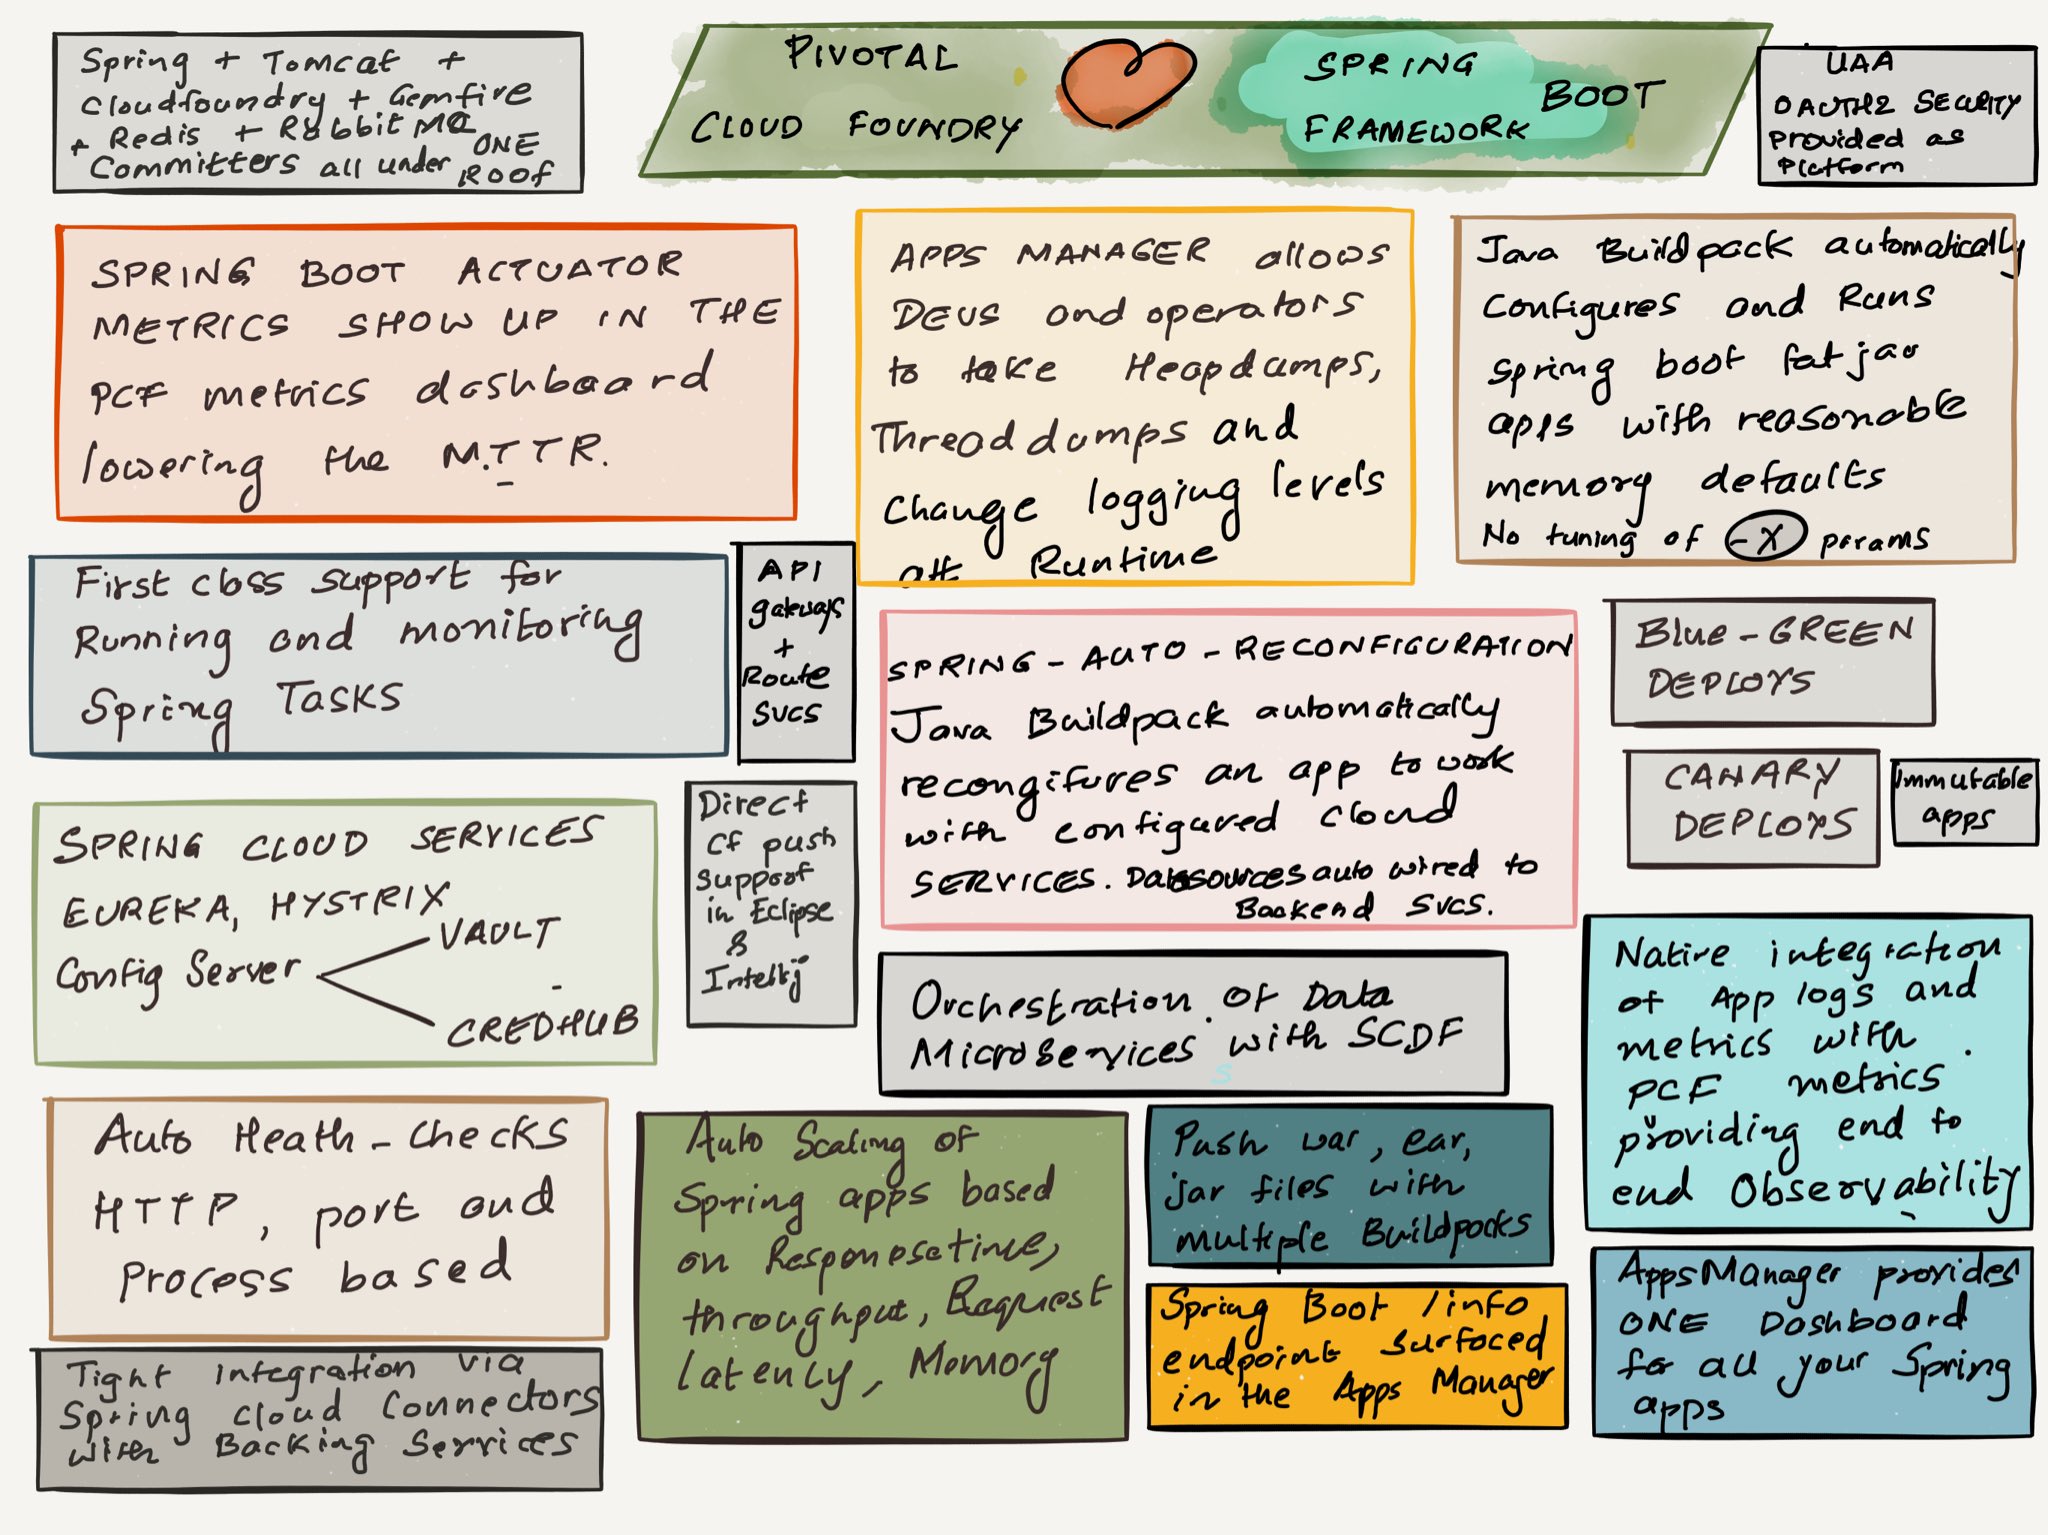 Spring + Tomcat +
Cloudfoundry + Gemfire
+ Redis + RabbitMQ
Committers all under ONE
ROOF
PIVOTAL
CLOUD FOUNDRY
SPRING
FRAMEWORK
BOOT
UAA
OAUTH2 SECURITY
Provided as
Platform
SPRING BOOT ACTUATOR
METRICS SHOW UP IN THE
PCF metrics dashboard
lowering the M.TTR.
APPS MANAGER allows
DEVS and operators
to take Heapdumps,
Thread dumps and
change logging levels
att Runtime
Java Buildpack automatically
Configures and Runs
spring boot fat jar
apps with reasonable
memory defaults
No tuning of -X params
First class support for
Running and monitoring
Spring TASKS
API
gateways
+
Route
SVCS
SPRING - AUTO - RECONFIGURATION
Java Buildpack automatically
recongifures an app to work
with configured cloud
SERVICES. Datasources auto wired to
Backend SVCS.
Blue - GREEN
DEPLOYS
CANARY
DEPLOYS
Immutable
apps
SPRING CLOUD SERVICES
EUREKA, HYSTRIX
Config Server
VAULT
CREDHUB
Direct
CF push
support
in Eclipse
&
Intellij
Orchestration of Data
MicroServices with SCDF
s
Native integration
of App logs and
metrics with
PCF metrics
providing end to
end Observability
Auto Heath - Checks
HTTP, port and
Process based
Auto Scaling of
Spring apps based
on Responsetime,
throughput, Request
latency, Memory
Push war, ear,
jar files with
multiple Buildpacks
Spring Boot /info
endpoint surfaced
in the Apps Manager
AppsManager provides
ONE Dashboard
for all your Spring
apps
Tight integration via
Spring cloud Connectors
with Backing Services